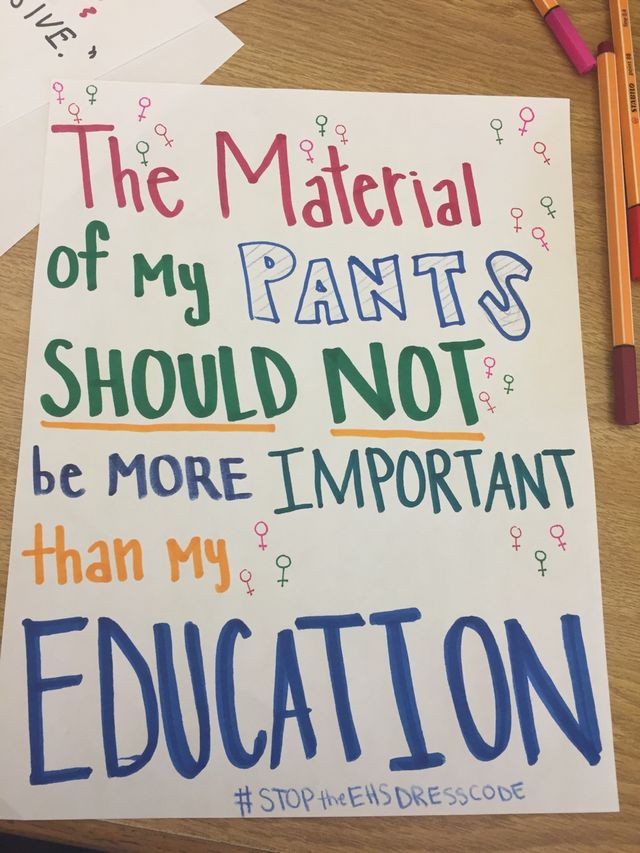 SIVE.
The Material
of My PANTS
SHOULD NOT
be MORE IMPORTANT
than My
EDUCATION
#STOPtheEHSDRESSCODE
STABILO